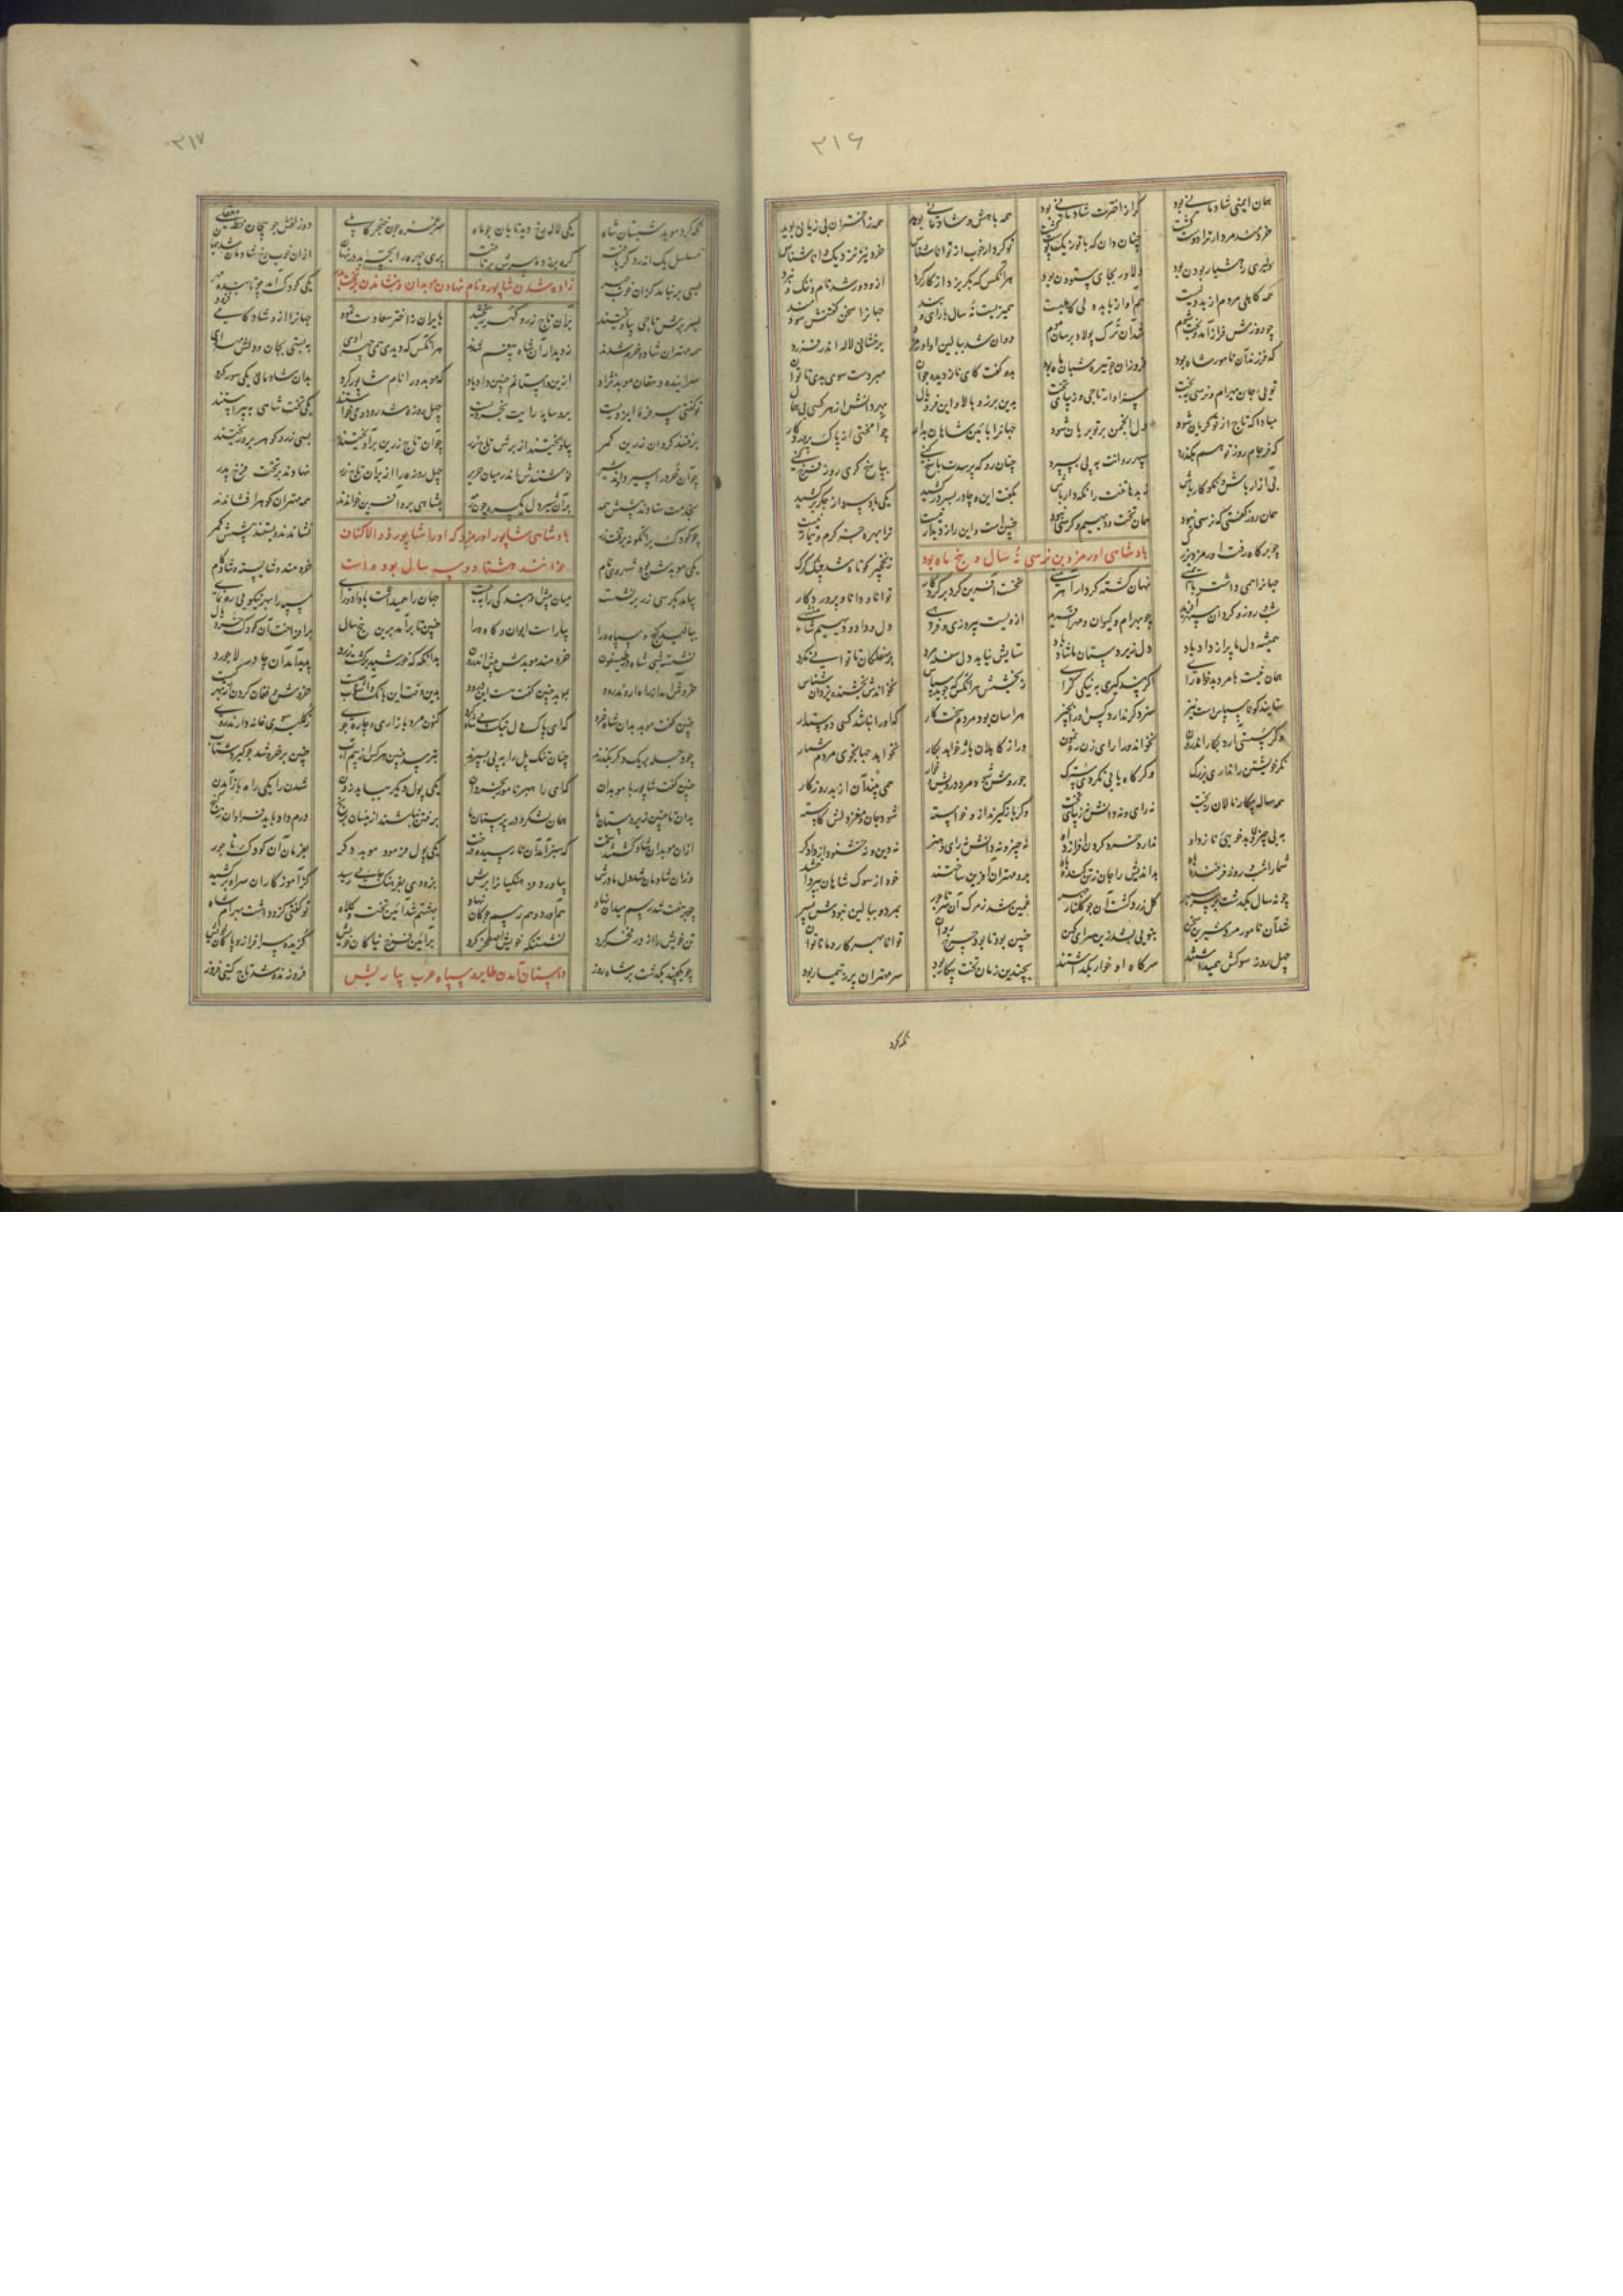 ۳۱۶
همان ایمنی شادمانی بود کرا ز اخترت شادمانی بود همه با هش و شادمانی بوید همه ز اختران بی زیانی بوید
خردمند مرد ار ترا دوست گشت چنان دان که با تو ز یک پوست گشت تو کردار خوب از توانا شناس خرد نیز نزدیک دانا شناس
دلیری ز هشیار بودن بود دلاور بجای ستودن بود هرآنکس که بگریزد از کارکرد ازو دور شد نام و ننک و نبرد
همه کاهلی مردم از بددلیست هم آواز با بددلی کاهلیست همیزیست نه سال با رای و پند جهانرا سخن گفتنش سودمند
چو روزش فراز آمد و بخت شوم شد آن ترک پولاد برسان موم دوان شد ببالین او اورمزد برخشانی لاله اندر فرزد
که فرزند آن نامور شاه بود فروزان چو در تیره شب ماه بود بدو گفت کای نازدیده جوان مبر دست سوی بدی تا توان
تویی جان بهرام و نرسی به بخت سزاوار تاجی و زیبای تخت بدین برز و بالا و این فر و یال بهر دانش از هر کسی بی همال
مبادا که تاج از تو گریان شود دل انجمن بر تو بریان شود جهانرا بآیین شاهان بدار چو آمختی از پاک پروردگار
که فرجام روز تو هم بگذرد سپهر روانت به پی بسپرد چنان رو که پرسدت پاسخ کنی بپاسخ گری روز فرخ کنی
بی آزار باش و نکوکار باش ز بدها تنت را نگهدار باش بگفت این و چادر بسر درکشید یکی باد سرد از جگر برکشید
همان روز گفتی که نرسی نبود همان تخت و دیهیم و کرسی نبود چنین است و این راز را دیدار نیست ترا بهره جستن گرم و تیمار نیست
پادشاهی اورمزد بن نرسی نه سال و پنج ماه بود
چو بر گاه رفت اورمزد بزرگ ز نخچیر کوتاه شد چنگ گرگ
جهانرا همی داشت با ایمنی نهان گشته کردار آهرمنی نخست آفرین کرد بر کردگار توانا و دانا و پروردگار
شب و روز و گردان سپهر آفرید چو بهرام و کیوان و مهر آفرید ازویست پیروزی و فرهی دل و داد و دیهیم شاهنشهی
همیشه دل ما پر از داد باد دل زیردستان ما شاد باد ستایش نیابد دل سفله مرد بر سفلگان تا توانی مگرد
همان نیست با مرد بدخواه رای اگر پند گیری به نیکی گرای ز بخشش هرآنکس که جوید سپاس نخواندش بخشنده یزدان شناس
ستاینده کو ناسپاس است نیز سزد گر ندارد کس او را بچیز هراسان بود مردم سخت کار که او را نباشد کسی دوستدار
وگر سستی آرد بکار اندرون نخواند ورا رای زن رهنمون گر از کاهلان یار خواهد بکار نخواند جهانجوی مردم شمار
نگر خویشتن را نداری بزرگ وگر گاه یابی نگردی سترگ چو روشن شد مرد درویش خوار همی بیند آن از بد روزگار
همه ساله بیکار و نالان ز بخت نه رای و نه دانش نه زیبای تخت وگر باز گیرند ازو خواسته شود جان و مغز و دلش کاسته
به بی چیزی و بدخویی نازد اوی ندارد خرد گردن افرازد اوی نه چیز و نه دانش نه رای و هنر نه دین و نه خشنود از دادگر
شما را شب و روز فرخنده باد بداندیش را جان ز تن کنده باد برو مهتران آفرین ساختند خود از سوک شاهان بپرداختند
چو نه سال بگذشت بر سر سپهر گل زرد گشت آن چو گلنار چهر غمین شد ز مرک آن سر تاجور بمرد و ببالین نبودش پسر
شد آن نامور مرد شیرین سخن بنویی بشد زین سرای کهن چنین بود تا بود چرخ روان توانا بهر کار و ما ناتوان
چهل روز سوکش همیداشتند سر گاه او خوار بگذاشتند بچندین زمان تخت بیکار بود سر مهتران پر ز تیمار بود
نگه کرد
۳۱۷
نگه کرد موبد شبستان شاه یکی لاله رخ دید تابان چو ماه سر مژه چون خنجر کابلی دو زلفش چو پیچان خط مقلی
مسلسل یک اندر دگر بافته گره بر زده سرش برتافته پری چهره را بچه بد در نهان ازان خوب رخ شادمان شد جهان
زاده شدن شاپور و نام نهادن موبدان و نشاندن بتخت
بسی برنیامد کزان خوب چهر یکی کودک آمد چو تابنده مهر
بسر برش تاجی بیاویختند بران تاج زر گهر ریختند
همه مهتران شاد و خرم شدند ز دیدار آن شاه بی غم شدند هرآنکس که دیدی همی چهر اوی
سراینده دهقان موبدنژاد ازین داستانم چنین داد یاد که موبد ورا نام شاپور کرد بدان شادمانی یکی سور کرد
تو گفتی همی فره ایزدیست برو سایه رایت بخردیست چهل روزه شد رود و می خواستند یکی تخت شاهی بیاراستند
برفتند گردان زرین کمر بیاویختند از برش تاج زر چو آن تاج زرین برآویختند بسی زر و گوهر برو ریختند
چو آن خرد را سیر دادند شیر نوشتندش اندر میان حریر چهل روزه را از بر آن تاج زر نهادند بر تخت فرخ پدر
بشاهی برو آفرین خواندند همه مهتران گوهر افشاندند
پادشاهی شاپور اورمزد که اورا شاپور ذو الاکتاف
خوانند هشتاد و سه سال بود مدت
چو کودک برانگونه بر تخت زر نشاندند و بستند پیشش کمر
یکی موبدش بود شهروی نام خردمند و شایسته و شادکام
بیامد بکرسی زر برنشست میان پیش او بندگی را ببست جهان را همیداشت با داد و رای سپه را بهر نیکویی رهنمای
بیاکند گنج و سپاه ورا بیاراست ایوان و گاه ورا چنین تا برآمد برین پنج سال برافراخت آن کودک خرد یال
نشسته شبی شاه در طیسفون خردمند موبدش پیش اندرون بدانگه که خورشید برگشت زرد پدید آمد آن چادر لاجورد
خروش آمد از راه اروندرود بموبد چنین گفت هست این درود
چنین گفت موبد بدان شاه خرد که ای پاک دل نیک پی شاه کنون مرد بازاری و چاره جوی ز کلبه سوی خانه دارند روی
چو دجله بر یک دگر بگذرند چنان تنگ پل را به پی بسپرند بترسد چنین هر کس از بیم آب چنین برخروشد چو گیرد شتاب
چنین گفت شاپور با موبدان که ای راهبر نامور بخردان یکی پول دیگر بباید زدن شدن را یکی راه باز آمدن
بدان تا چنین زیردستان ما همان لشکر و در پرستان ما برفتن نباشند ازینسان برنج درم داد باید فراوان ز گنج
ازان موبدان شاد گشتند سخت که سبز آمد آن نارسیده درخت یکی پول فرمود موبد دگر بفرمان آن کودک تاجور
وزان شادمان شد دل مادرش بیاورد فرهنگیان را برش بزودی بفرهنگ جایی رسید کز آموزگاران سر اندر کشید
چو بر هفت شد رسم میدان نهاد هم آورد و هم رسم چوگان نهاد بهشتم شد آیین تخت و کلاه تو گفتی کمر بسته بهرامشاه
تن خویش را از در فخر کرد نشستنگه خویش اصطخر کرد بر آیین فرخ نیاکان خویش گزیده سرافراز و پاکان خویش
چو یکچند بگذشت بر شاه روز فروزنده شد تاج گیتی فروز
داستان آمدن طایر و سپاه عرب بپارس